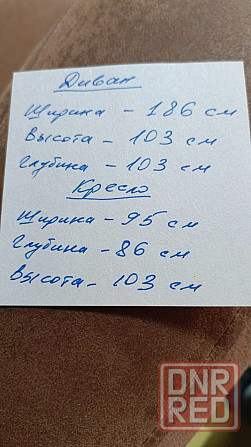 Диван
Ширина - 186 см
Высота - 103 см
Глубина - 103 см
Кресло
Ширина - 95 см
Глубина - 86 см
Высота - 103 см
DNR
RED